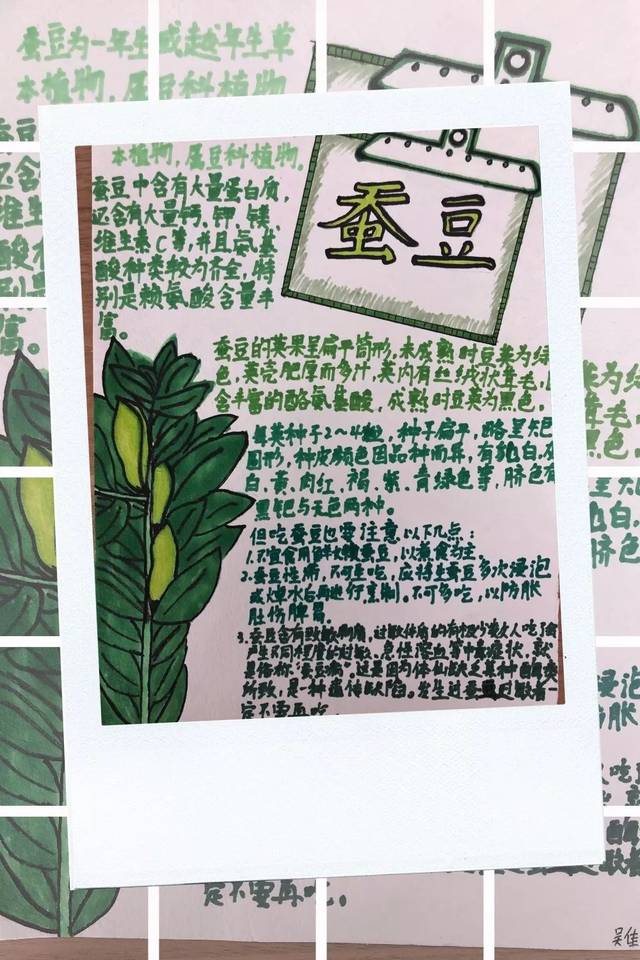 蚕豆为一年生或越年生草
本植物，属豆科植物
蚕豆
本植物，属豆科植物。
蚕豆中含有大量蛋白质，
还含有大量钙、钾、镁、
维生素C等，并且氨基
酸种类较为齐全，特
别是赖氨酸含量丰
富。
蚕豆的荚果呈扁平筒形，未成熟时豆荚为绿
色，荚壳肥厚而多汁，荚内有丝绒状茸毛，
含丰富的酪氨基酸，成熟时豆荚为黑色。
每荚种子2～4粒，种子扁平，略呈矩
圆形，种皮颜色因品种而异，有乳白、灰
白、黄、肉红、褐、紫、青绿色等，脐色有
黑色与无色两种。
但吃蚕豆也要注意以下几点：
1.不宜食用鲜嫩蚕豆，以煮食为主。
2.蚕豆性滞，不可生吃，应将生蚕豆多次浸泡
或焯水后再进行烹制。不可多吃，以防胀
肚伤脾胃。
3.蚕豆含有致敏物质，过敏体质的有极少数人吃了会
产生不同程度的过敏、急性溶血等中毒症状，就
是俗称"蚕豆病"，这是因为体内缺乏某种酶类
所致，是一种遗传缺陷。发生过蚕豆过敏者一
定不要再吃
定不要再吃。
吴佳